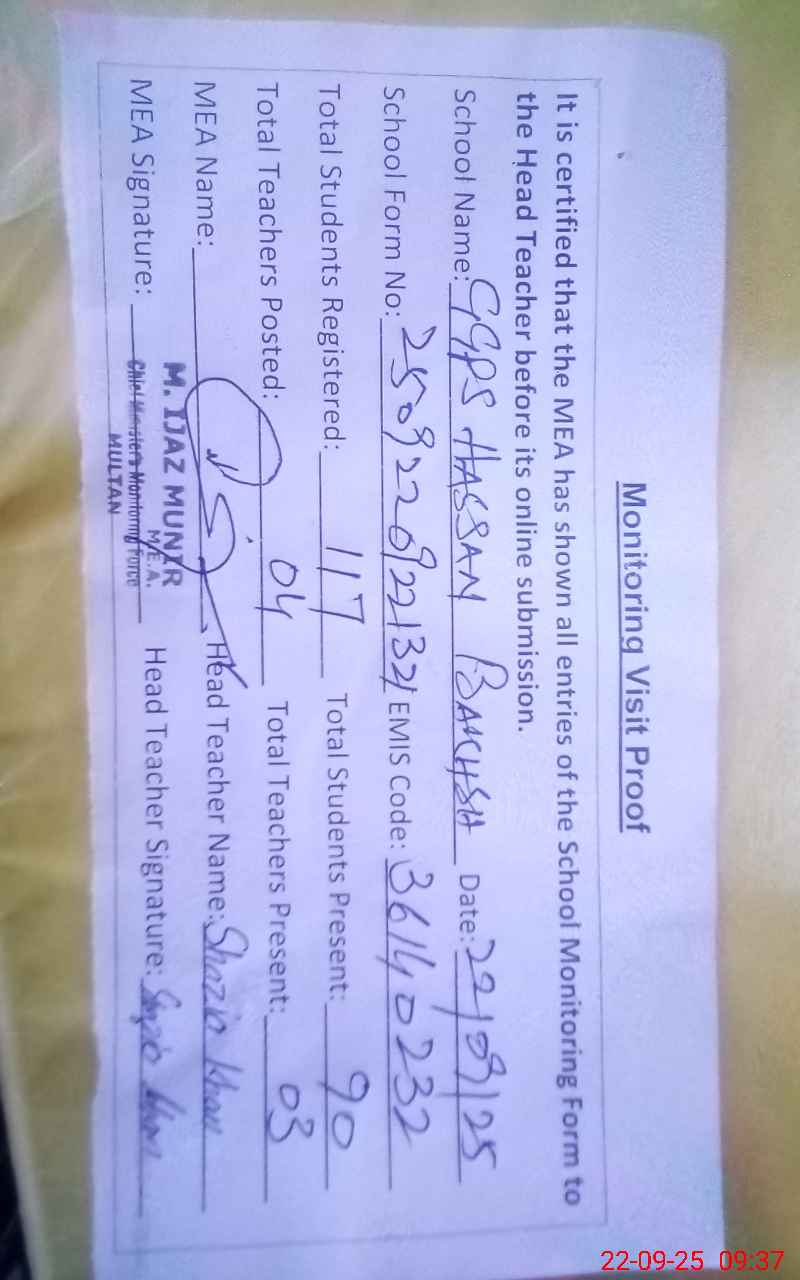 Monitoring Visit Proof
It is certified that the MEA has shown all entries of the School Monitoring Form to
the Head Teacher before its online submission.
School Name: GGPS HASSAN BAKHSH Date: 22/09/25
School Form No: EMIS Code: 36140232
Total Students Registered: 117 Total Students Present: 90
Total Teachers Posted: 04 Total Teachers Present: 03
MEA Name: Head Teacher Name: Shazia Khan
M. IJAZ MUNIR
M.E.A.
MEA Signature: Chief Minister's Monitoring Force Head Teacher Signature: Shazia Khan
MULTAN
22-09-25 09:37